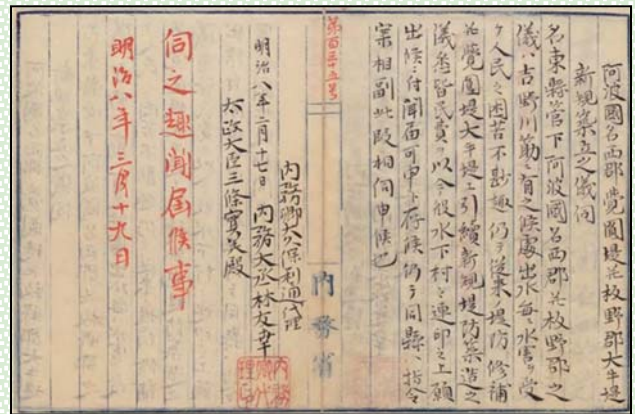 阿波國名西郡覚圓堤〓板野郡大牛堤
新規築立之儀伺
名東縣管下阿波國名西郡〓板野郡之
儀ハ吉野川筋ニ有之候處出水毎ニ水害ヲ受
ケ人民之困苦不尠趣仍テ従来ノ堤防修補
〓覺圓堤大牛堤ニ引續新規堤防築造之
儀悉皆民費ヲ以今般水下村々連印之上願
出候ニ付聞届可申ト存候仍テ同縣ヘ指令
案相副此段相伺申候也
第百三十五号
内務卿大久保利通代理
明治八年二月十七日 内務大丞林友幸
太政大臣三條實美殿
内務省
伺之趣聞届候事
明治八年三月十九日